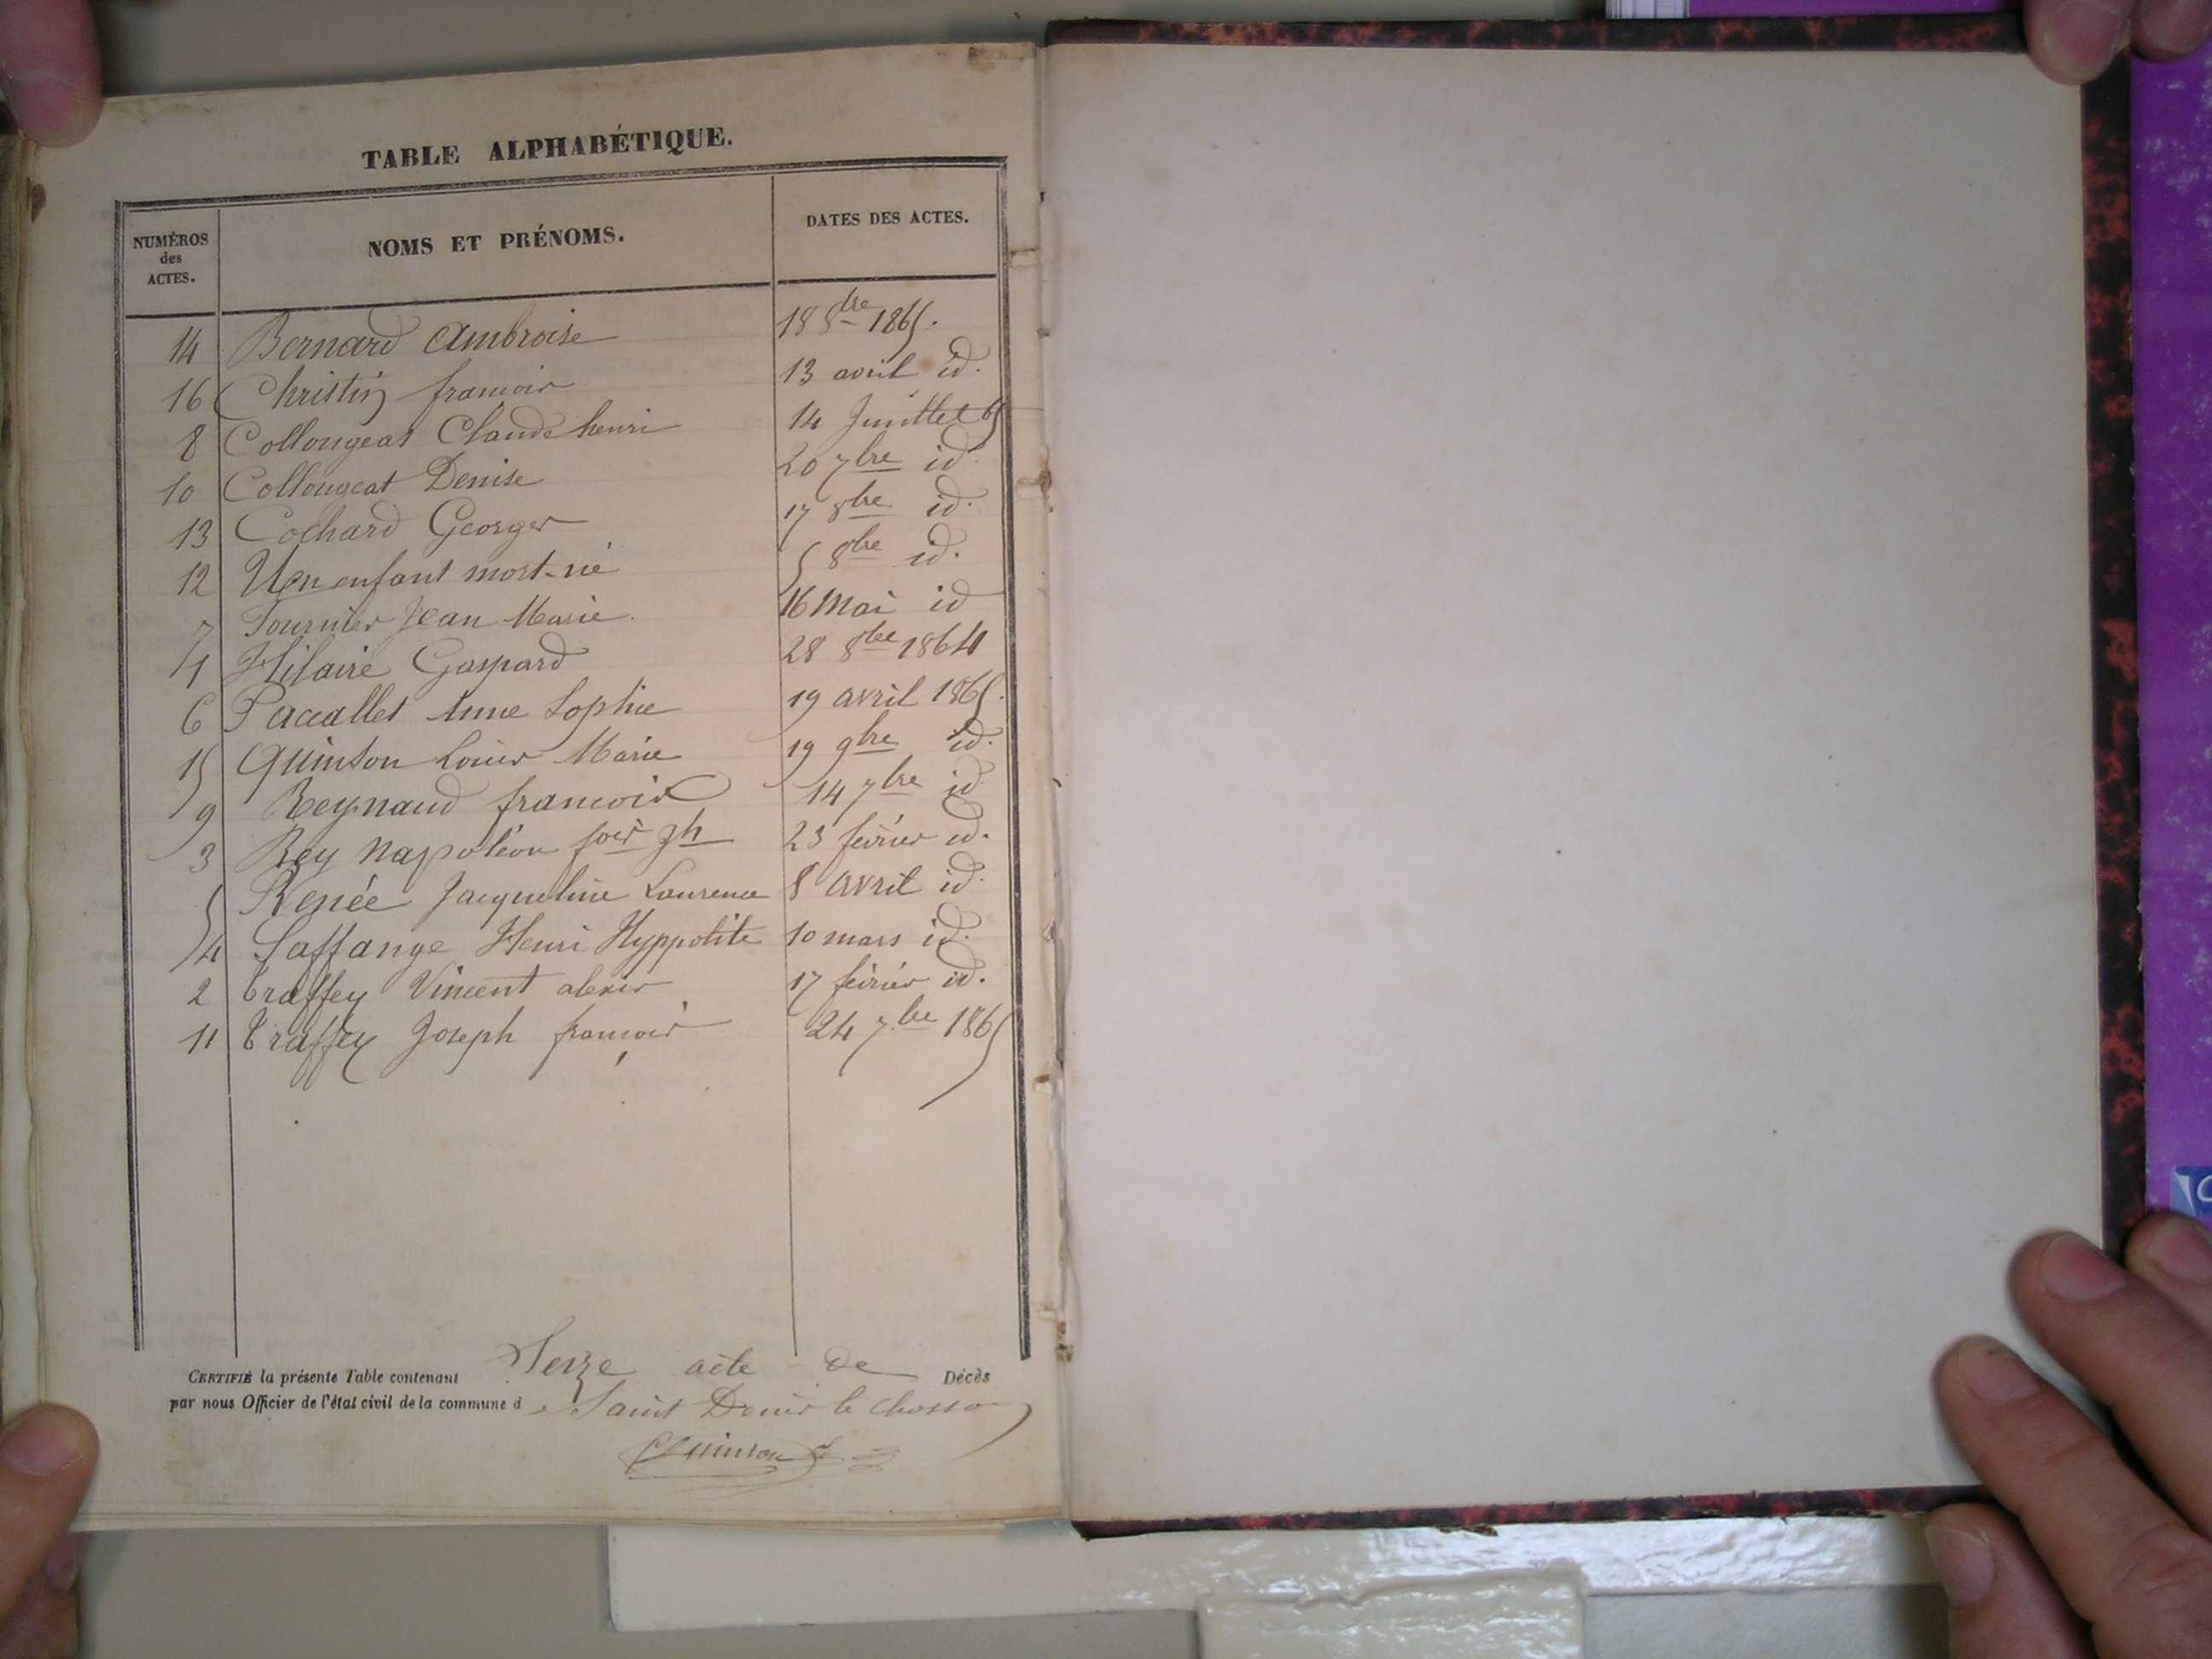 TABLE ALPHABÉTIQUE.
NUMÉROS des ACTES. NOMS ET PRÉNOMS. DATES DES ACTES.
14 Bernard Ambroise 18 8bre 1865.
16 Christin francois 13 avril id.
8 Collongeat Claude henri 14 Juillet 65
10 Collongeat Denise 20 7bre id.
13 Cochard Georges 17 8bre id.
12 Un enfant mort-né 5 8bre id.
7 Fournier Jean Marie. 16 Mai id
1 Hilaire Gaspard 28 8bre 1864
6 Paccallet Anne Sophie 19 avril 1865.
15 Quinson Louis Marie 19 9bre id.
9 Reynaud francois 14 7bre id
3 Rey Napoléon fois Jh 23 février id.
5 Renée Jacqueline Laurence 8 avril id.
4 Saffange Henri Hyppolite 10 mars id.
2 Traffey Vincent alexis 17 février id.
11 Traffey Joseph françois 24 7bre 1865
CERTIFIÉ la présente Table contenant Seize acte de Décès
par nous Officier de l'état civil de la commune de Saint Denis le Chosson
Quinson